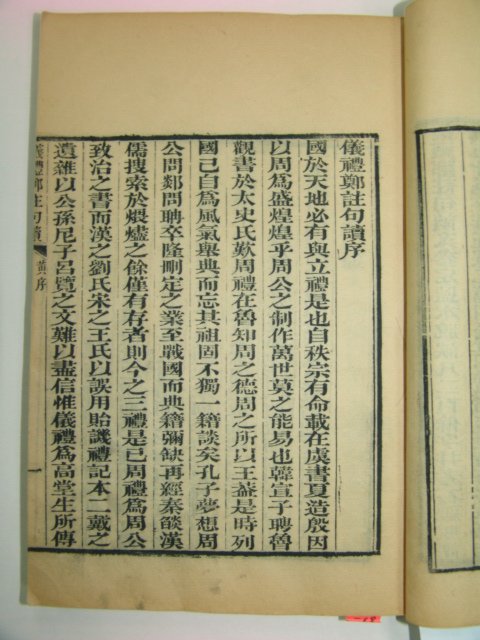 儀禮鄭註句讀序
國於天地必有與立禮是也自秩宗有命載在虞書夏造殷因
以周爲盛煌煌乎周公之制作萬世莫之能易也韓宣子聘魯
觀書於太史氏歎周禮在魯知周之德周之所以王葢是時列
國已自爲風氣舉典而忘其祖固不獨一籍談矣孔子夢想周
公問郯問聃卒隆刪定之業至戰國而典籍彌缺再經秦燄漢
儒搜索於煨燼之餘僅有存者則今之三禮是已周禮爲周公
致治之書而漢之劉氏宋之王氏以誤用貽譏禮記本二戴之
遺雜以公孫尼子呂覽之文難以盡信惟儀禮爲高堂生所傳
儀禮鄭註句讀
序
一